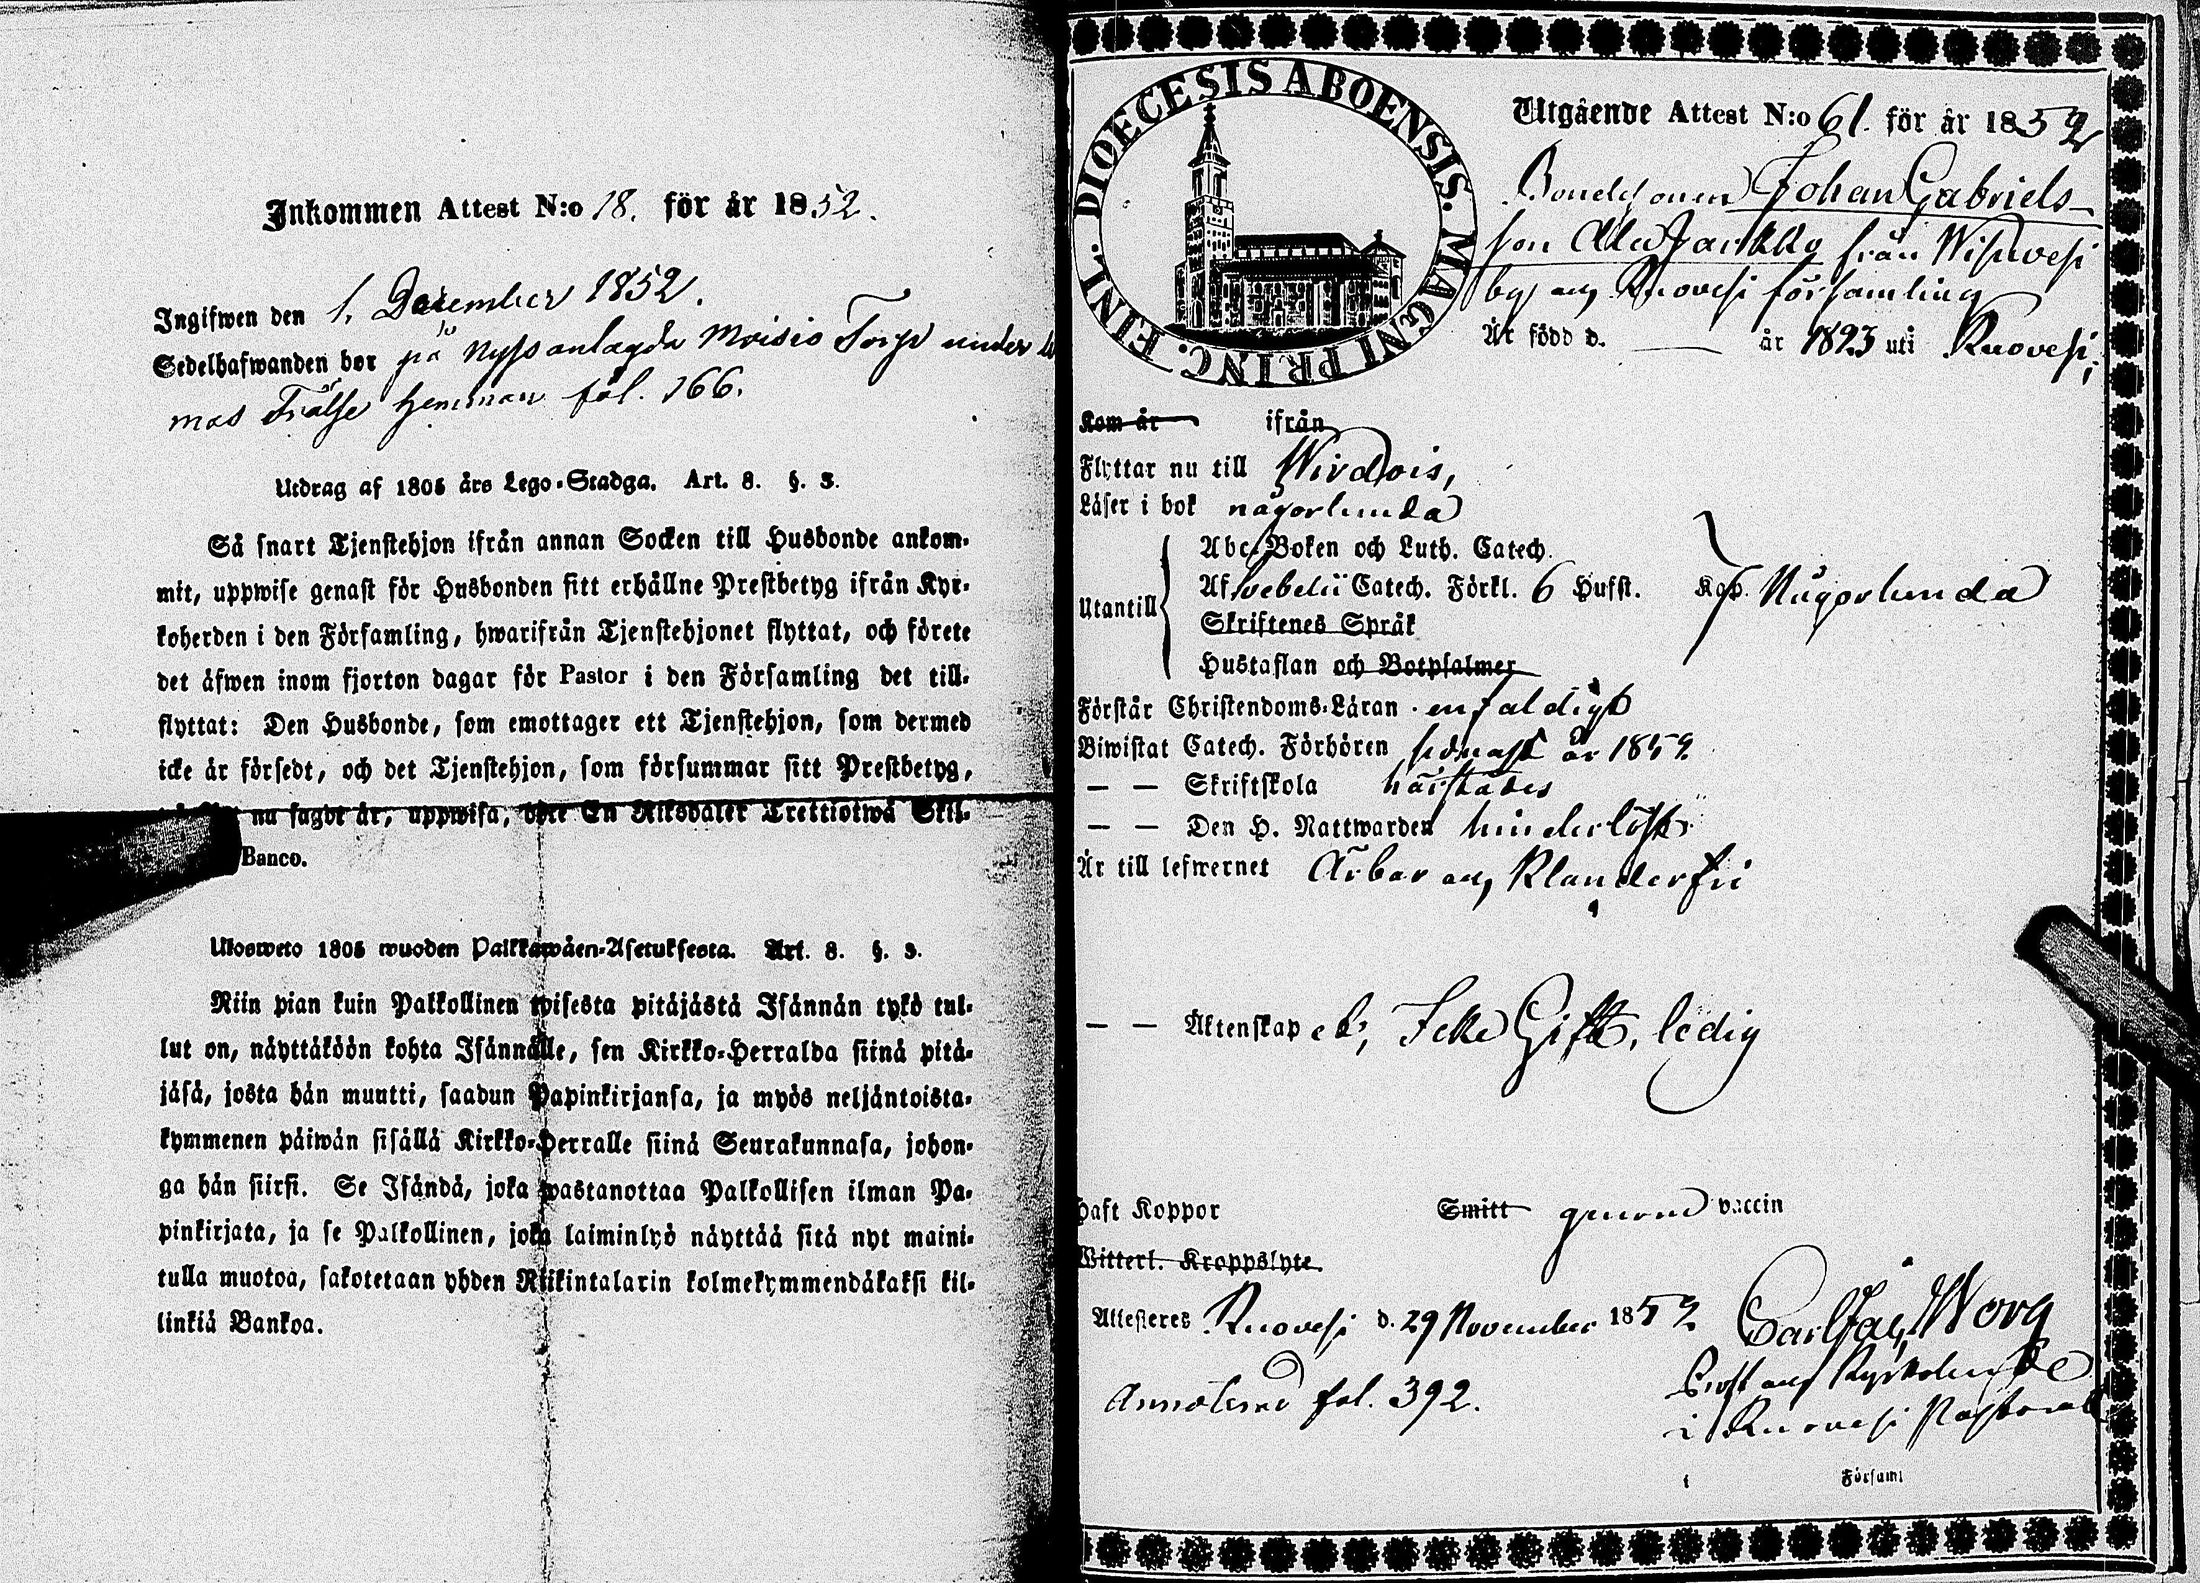 Inkommen Attest N:o 18. för år 1852.
Ingifwen den 1. December 1852.
Sedelhafwanden bor på Nyss anlagda Moisio Torp under
mas Frälse hemman fol. 166.
Utdrag af 1805 års Lego-Stadga. Art. 8. §. 3.
Så snart Tjenstehjon ifrån annan Socken till Husbonde ankom-
mit, uppwise genast för Husbonden sitt erhållne Prestbetyg ifrån Kyr-
koherden i den Församling, hwarifrån Tjenstehjonet flyttat, och förete
det äfwen inom fjorton dagar för Pastor i den Församling det till-
flyttat: Den Husbonde, som emottager ett Tjenstehjon, som dermed
icke är försedt, och det Tjenstehjon, som försummar sitt Prestbetyg,
nu sagdt är, uppwisa, böte En Riksdaler Trettiotwå Skil-
Banco.
Ulosweto 1805 wuoden Palkkawäen-Asetuksesta. Art. 8. §. 3.
Niin pian kuin Palkollinen toisesta pitäjästä Isännän tykö tul-
lut on, näyttäköön kohta Isännälle, sen Kirkko-Herralda siinä pitä-
jäsä, josta hän muutti, saadun Papinkirjansa, ja myös neljäntoista-
kymmenen päiwän sisällä Kirkko-Herralle siinä Seurakunnasa, johon-
ga hän siirsi. Se Isändä, joka wastanottaa Palkollisen ilman Pa-
pinkirjata, ja se Palkollinen, joka laiminlyö näyttää sitä nyt maini-
tulla muotoa, sakotetaan yhden Riikintalarin kolmekymmendäkaksi kil-
linkiä Bankoa.
DIOECESIS ABOENSIS. MAGNI PRINC. FINL.
Utgående Attest N:o 61. för år 1852
Bondesonen Johan Gabriels-
son Ala Jaskko från Wisuvesi
by af Ruovesi församling
Är född d. — år 1823 uti Ruovesi,
Kom år ifrån
Flyttar nu till Wirdois,
Läser i bok någorlunda
Utantill
Abc-Boken och Luth. Catech.
Af Svebelii Catech. Förkl. 6 Hufst. Kap. Någorlunda
Skriftenes Språk
Hustaflan och Botpsalmer
Förstår Christendoms-Läran enfaldigt
Biwistat Catech. Förhören sednast år 1852
— — Skriftskola härstädes
— — Den H. Nattwarden hinderlöst
Är till lefwernet Ärbar och Klanderfri
— — Äktenskap etc, Icke Gift, ledig
Haft Koppor Smitt genom vaccin
Witterl. Kroppslyte.
Attesteres Ruovesi d. 29 November 1852 Carl Jac. Worg
Prost och Kyrkoherde
Annoterad fol. 392.
i Ruovesi Pastorat
Församl